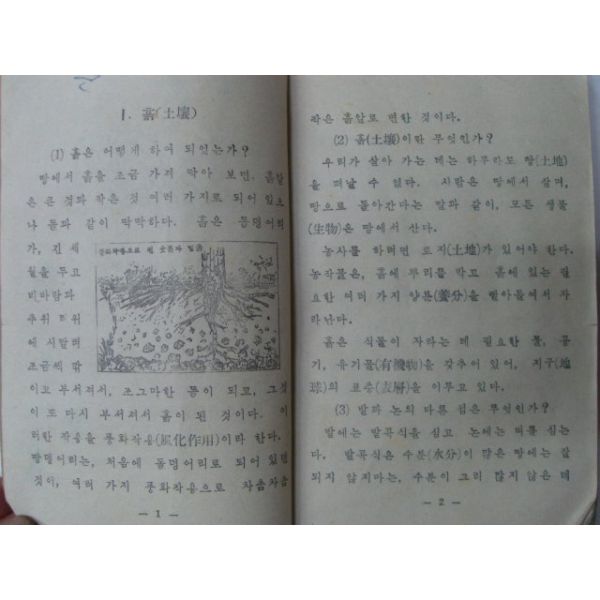 1. 흙(土壤)
(1) 흙은 어떻게 하여 되었는가?
땅에서 흙을 조금 가져 와 보면, 흙알
은 큰 것과 작은 것 여러 가지로 되어 있으
나 돌과 같이 딱딱하다. 흙은 돌덩어리
가, 긴 세
월을 두고
비바람과
추위 더위
에 시달려
조금씩 깎
이고 부서져서, 조그마한 돌이 되고, 그것
이 또 다시 부서져서 흙이 된 것이다. 이
러한 작용을 풍화작용(風化作用)이라 한다.
땅덩어리는, 처음에 돌덩어리로 되어 있던
것이, 여러 가지 풍화작용으로 차츰차츰
— 1 —
작은 흙알로 변한 것이다.
(2) 흙(土壤)이란 무엇인가?
우리가 살아 가는 데는 하루라도 땅(土地)
을 떠날 수 없다. 사람은 땅에서 살며,
땅으로 돌아간다는 말과 같이, 모든 생물
(生物)은 땅에서 산다.
농사를 하려면 토지(土地)가 있어야 한다.
농작물은, 흙에 뿌리를 박고 흙에 있는 필
요한 여러 가지 양분(養分)을 빨아들여서 자
라난다.
흙은 식물이 자라는 데 필요한 물, 공
기, 유기물(有機物)을 갖추어 있어, 지구(地
球)의 표층(表層)을 이루고 있다.
(3) 밭과 논의 다른 점은 무엇인가?
밭에는 밭곡식을 심고 논에는 벼를 심는
다. 밭곡식은 수분(水分)이 많은 땅에는 잘
되지 않지마는, 수분이 그리 많지 않은 데
— 2 —